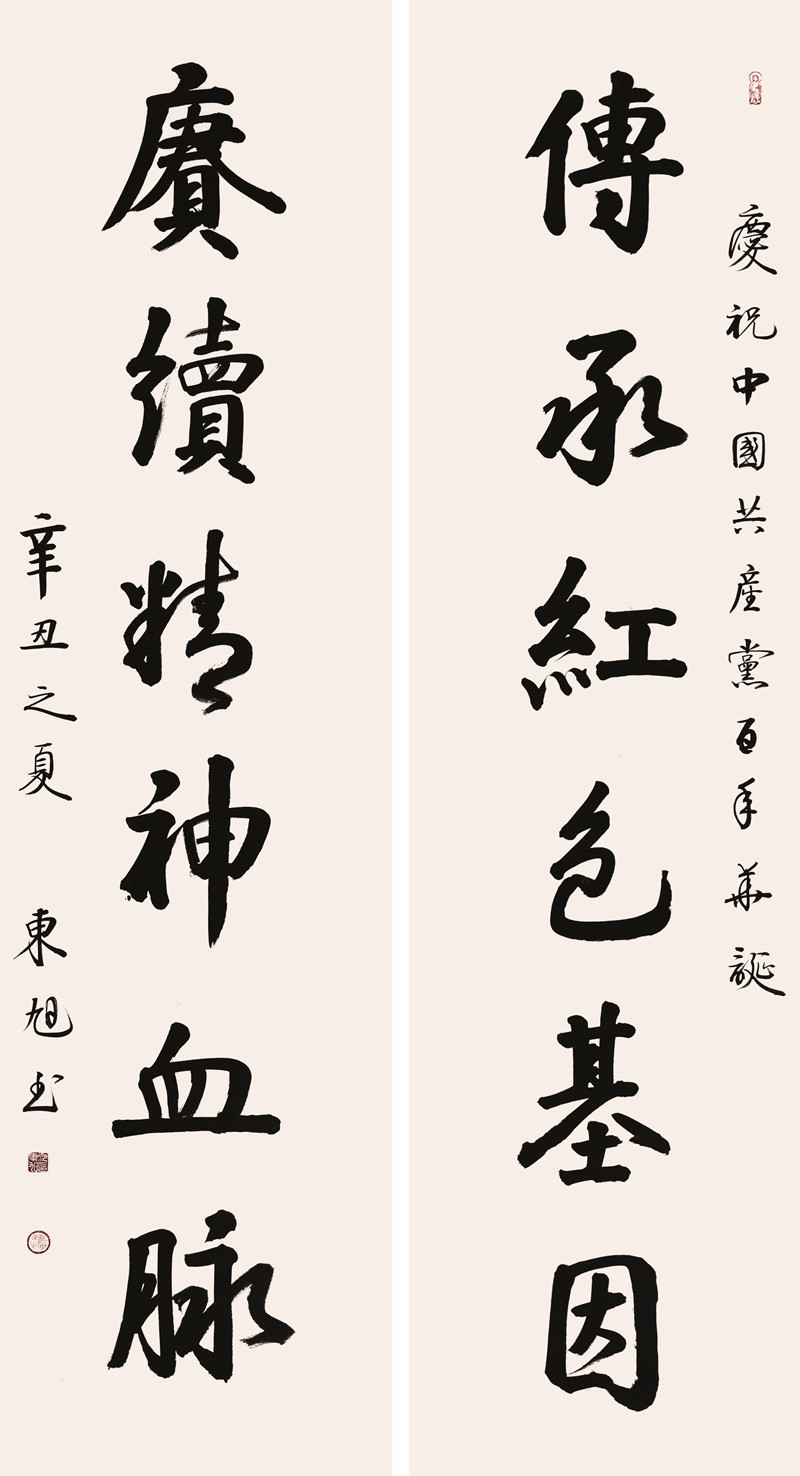 慶祝中國共産黨百年華誕
傳承紅色基因
賡續精神血脉
辛丑之夏 東旭書